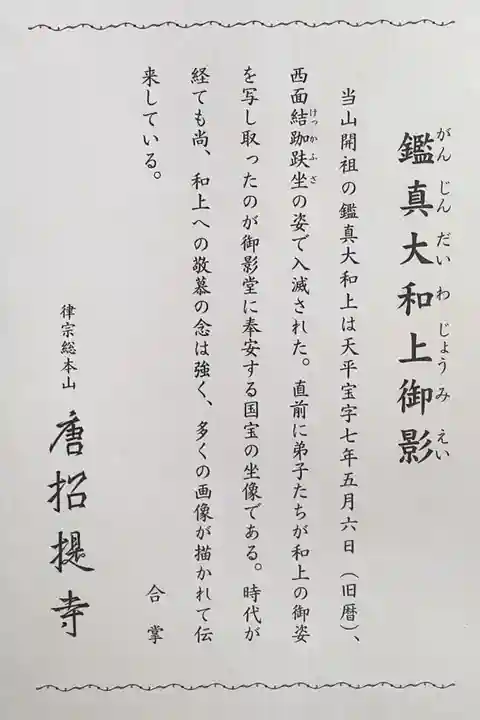 鑑真大和上御影
がんじんだいわじょうみえい
当山開祖の鑑真大和上は天平宝字七年五月六日（旧暦）、
西面結跏趺坐の姿で入滅された。直前に弟子たちが和上の御姿
けっかふざ
を写し取ったのが御影堂に奉安する国宝の坐像である。時代が
経ても尚、和上への敬慕の念は強く、多くの画像が描かれて伝
来している。
合掌
律宗総本山 唐招提寺